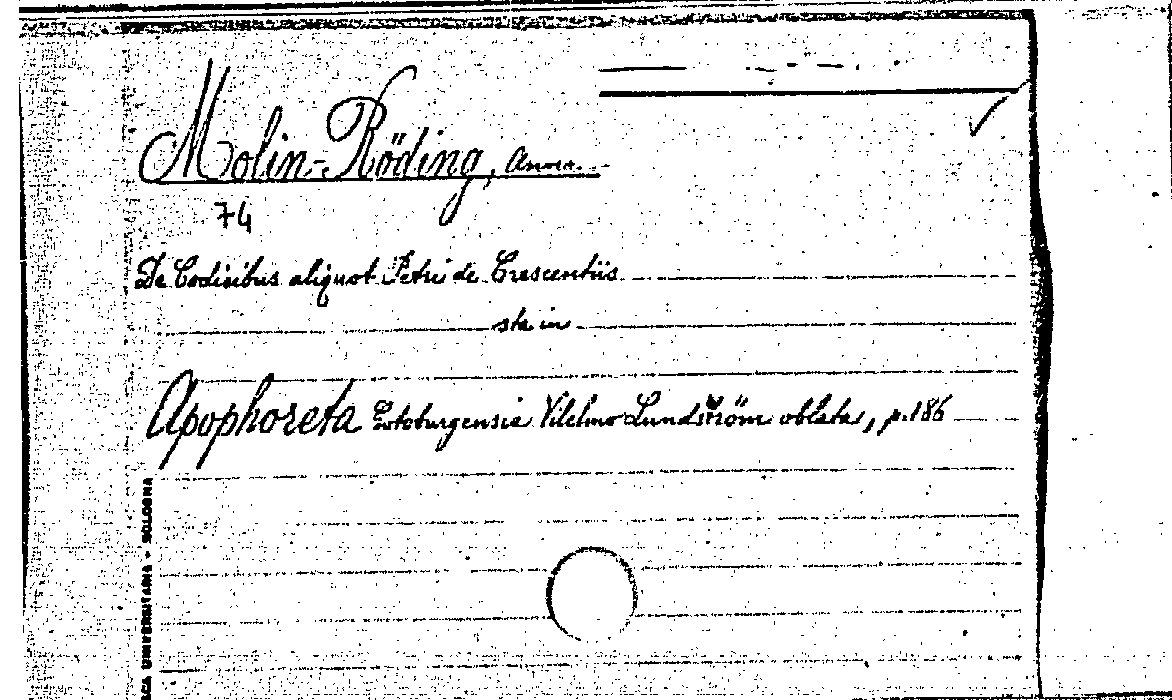 Molin-Röding, Anna
74
De Codicibus aliquot Petri de Crescentiis
sta in
Apophoreta Gotoburgensia Vilelmo Lundström oblata, p. 186
ACA UNIVERSITARIA - BOLOGNA